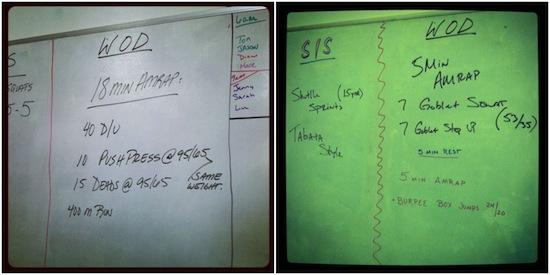 S
SQUATS
5-5
WOD
18 MIN AMRAP:
40 D/U
10 PUSH PRESS @ 95/65
15 DEADS @ 95/65
(SAME WEIGHT.
400 M RUN
6am
Jon
JASON
Diana
9am
Jenny
Sarah
SIS
Shuttle (15yd)
Sprints
TABATA
Style
WOD
5 Min
AMRAP
7 Goblet Squat
7 Goblet Step UP
(53/35)
5 MIN REST
5 MIN AMRAP
• BURPEE BOX JUMPS 24/20